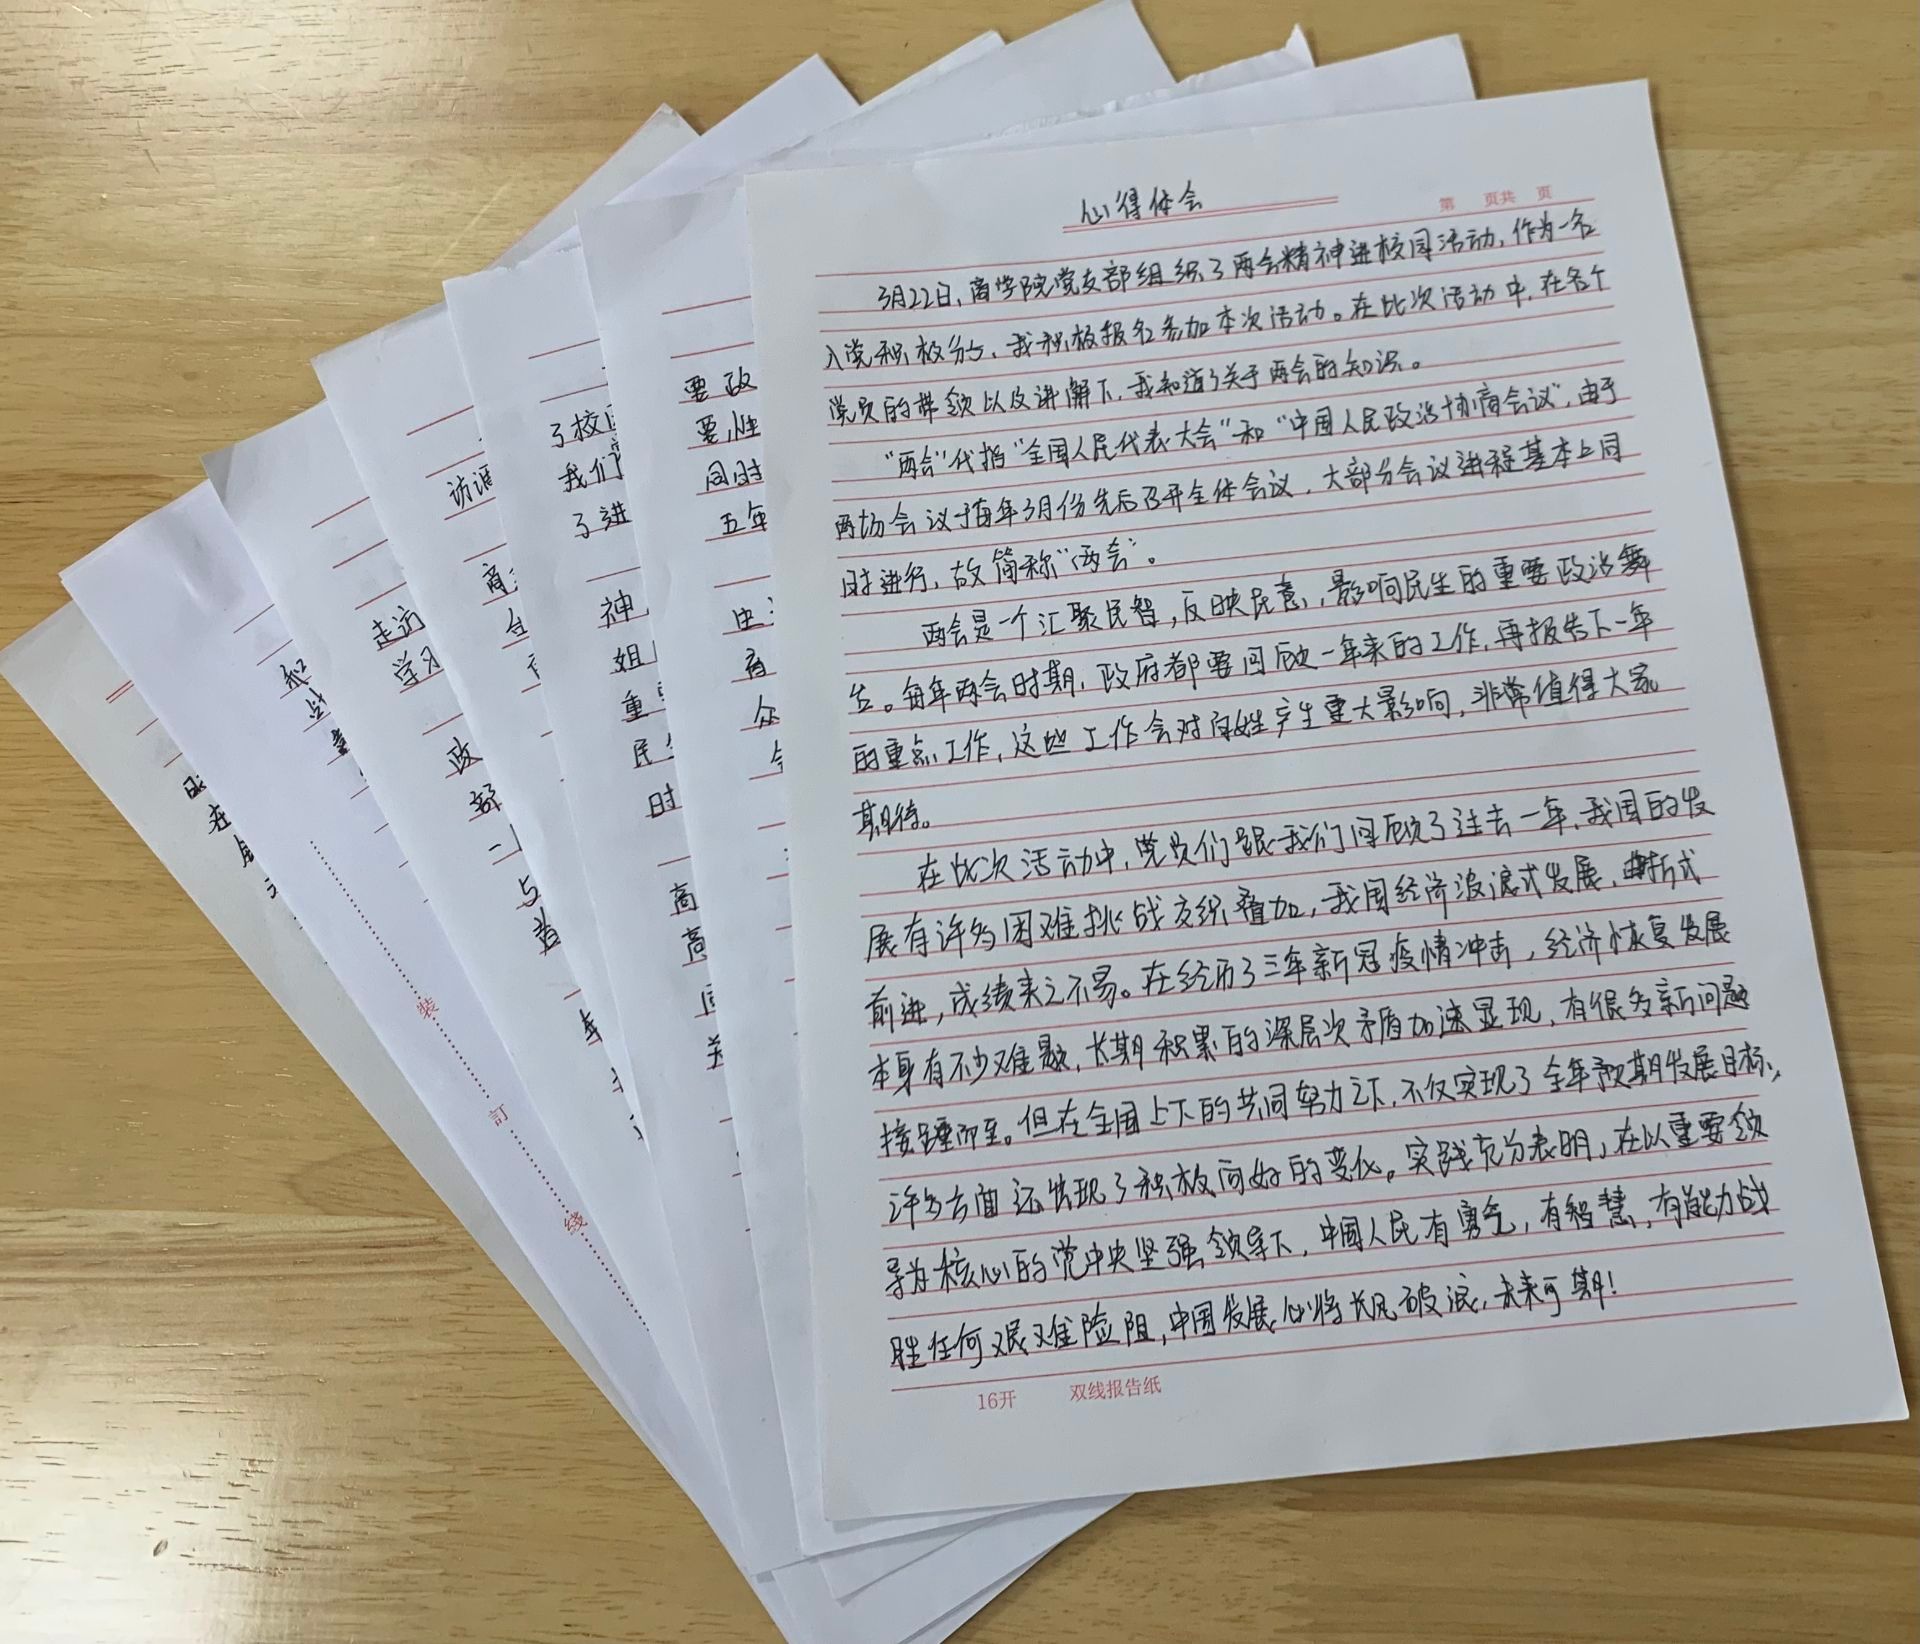 心得体会
第 页共 页
3月22日，商学院党支部组织了两会精神进校园活动，作为一名
入党积极分子，我积极报名参加本次活动。在此次活动中，在各个
党员的带领以及讲解下，我知道了关于两会的知识。
“两会”代指“全国人民代表大会”和“中国人民政治协商会议”，由于
两场会议于每年3月份先后召开全体会议，大部分会议进程基本上同
时进行，故简称“两会”。
两会是一个汇聚民智，反映民意，影响民生的重要政治舞
台。每年两会时期，政府都要回顾一年来的工作，再报告下一年
的重点工作，这些工作会对百姓产生重大影响，非常值得大家
期待。
在此次活动中，党员们跟我们回顾了过去一年，我国的发
展有许多困难挑战交织叠加，我国经济波浪式发展，曲折式
前进，成绩来之不易。在经历了三年新冠疫情冲击，经济恢复发展
本身有不少难题，长期积累的深层次矛盾加速显现，有很多新问题
接踵而至。但在全国上下的共同努力之下，不仅实现了全年预期发展目标，
许多方面还出现了积极向好的变化。实践充分表明，在以重要领
导为核心的党中央坚强领导下，中国人民有勇气，有智慧，有能力战
胜任何艰难险阻，中国发展必将长风破浪，未来可期！
16开 双线报告纸
要政
要性
同时
五年
商
众
了校园
我们
了进
神
姐
重
民
时
高
高
访谈
商
走访
学习
政
部
一
与
和
在
装
订
线